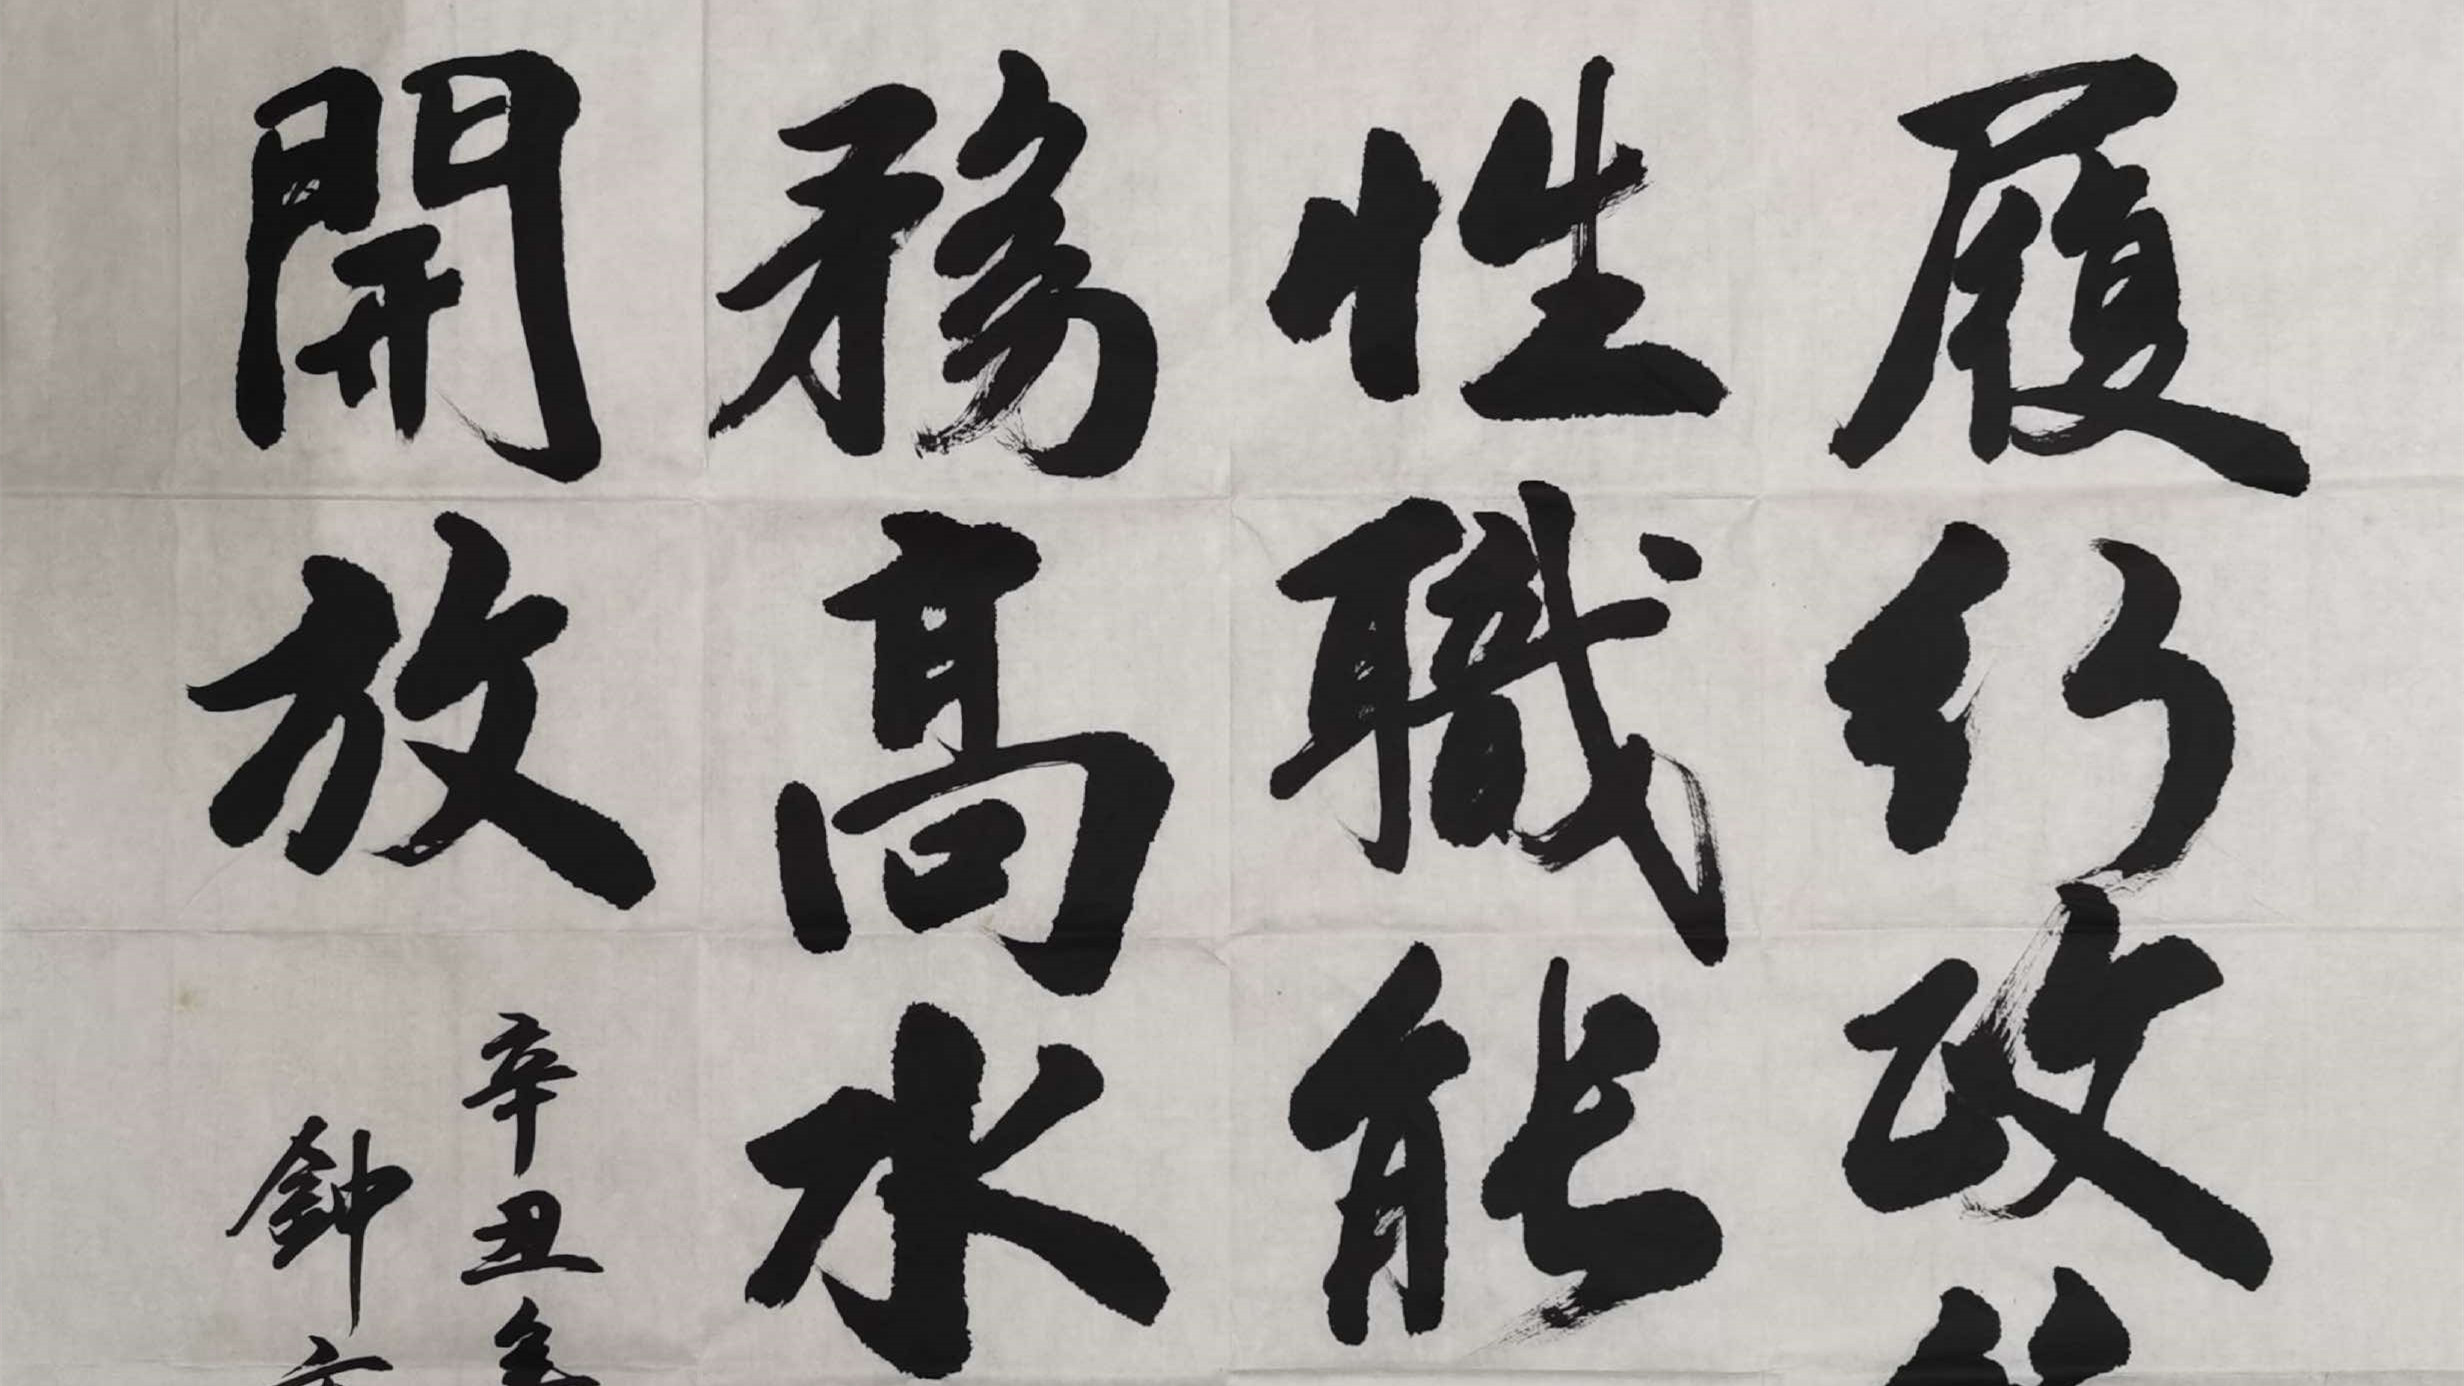 履行政策
性職能
務高水
開放
辛丑冬
鈡